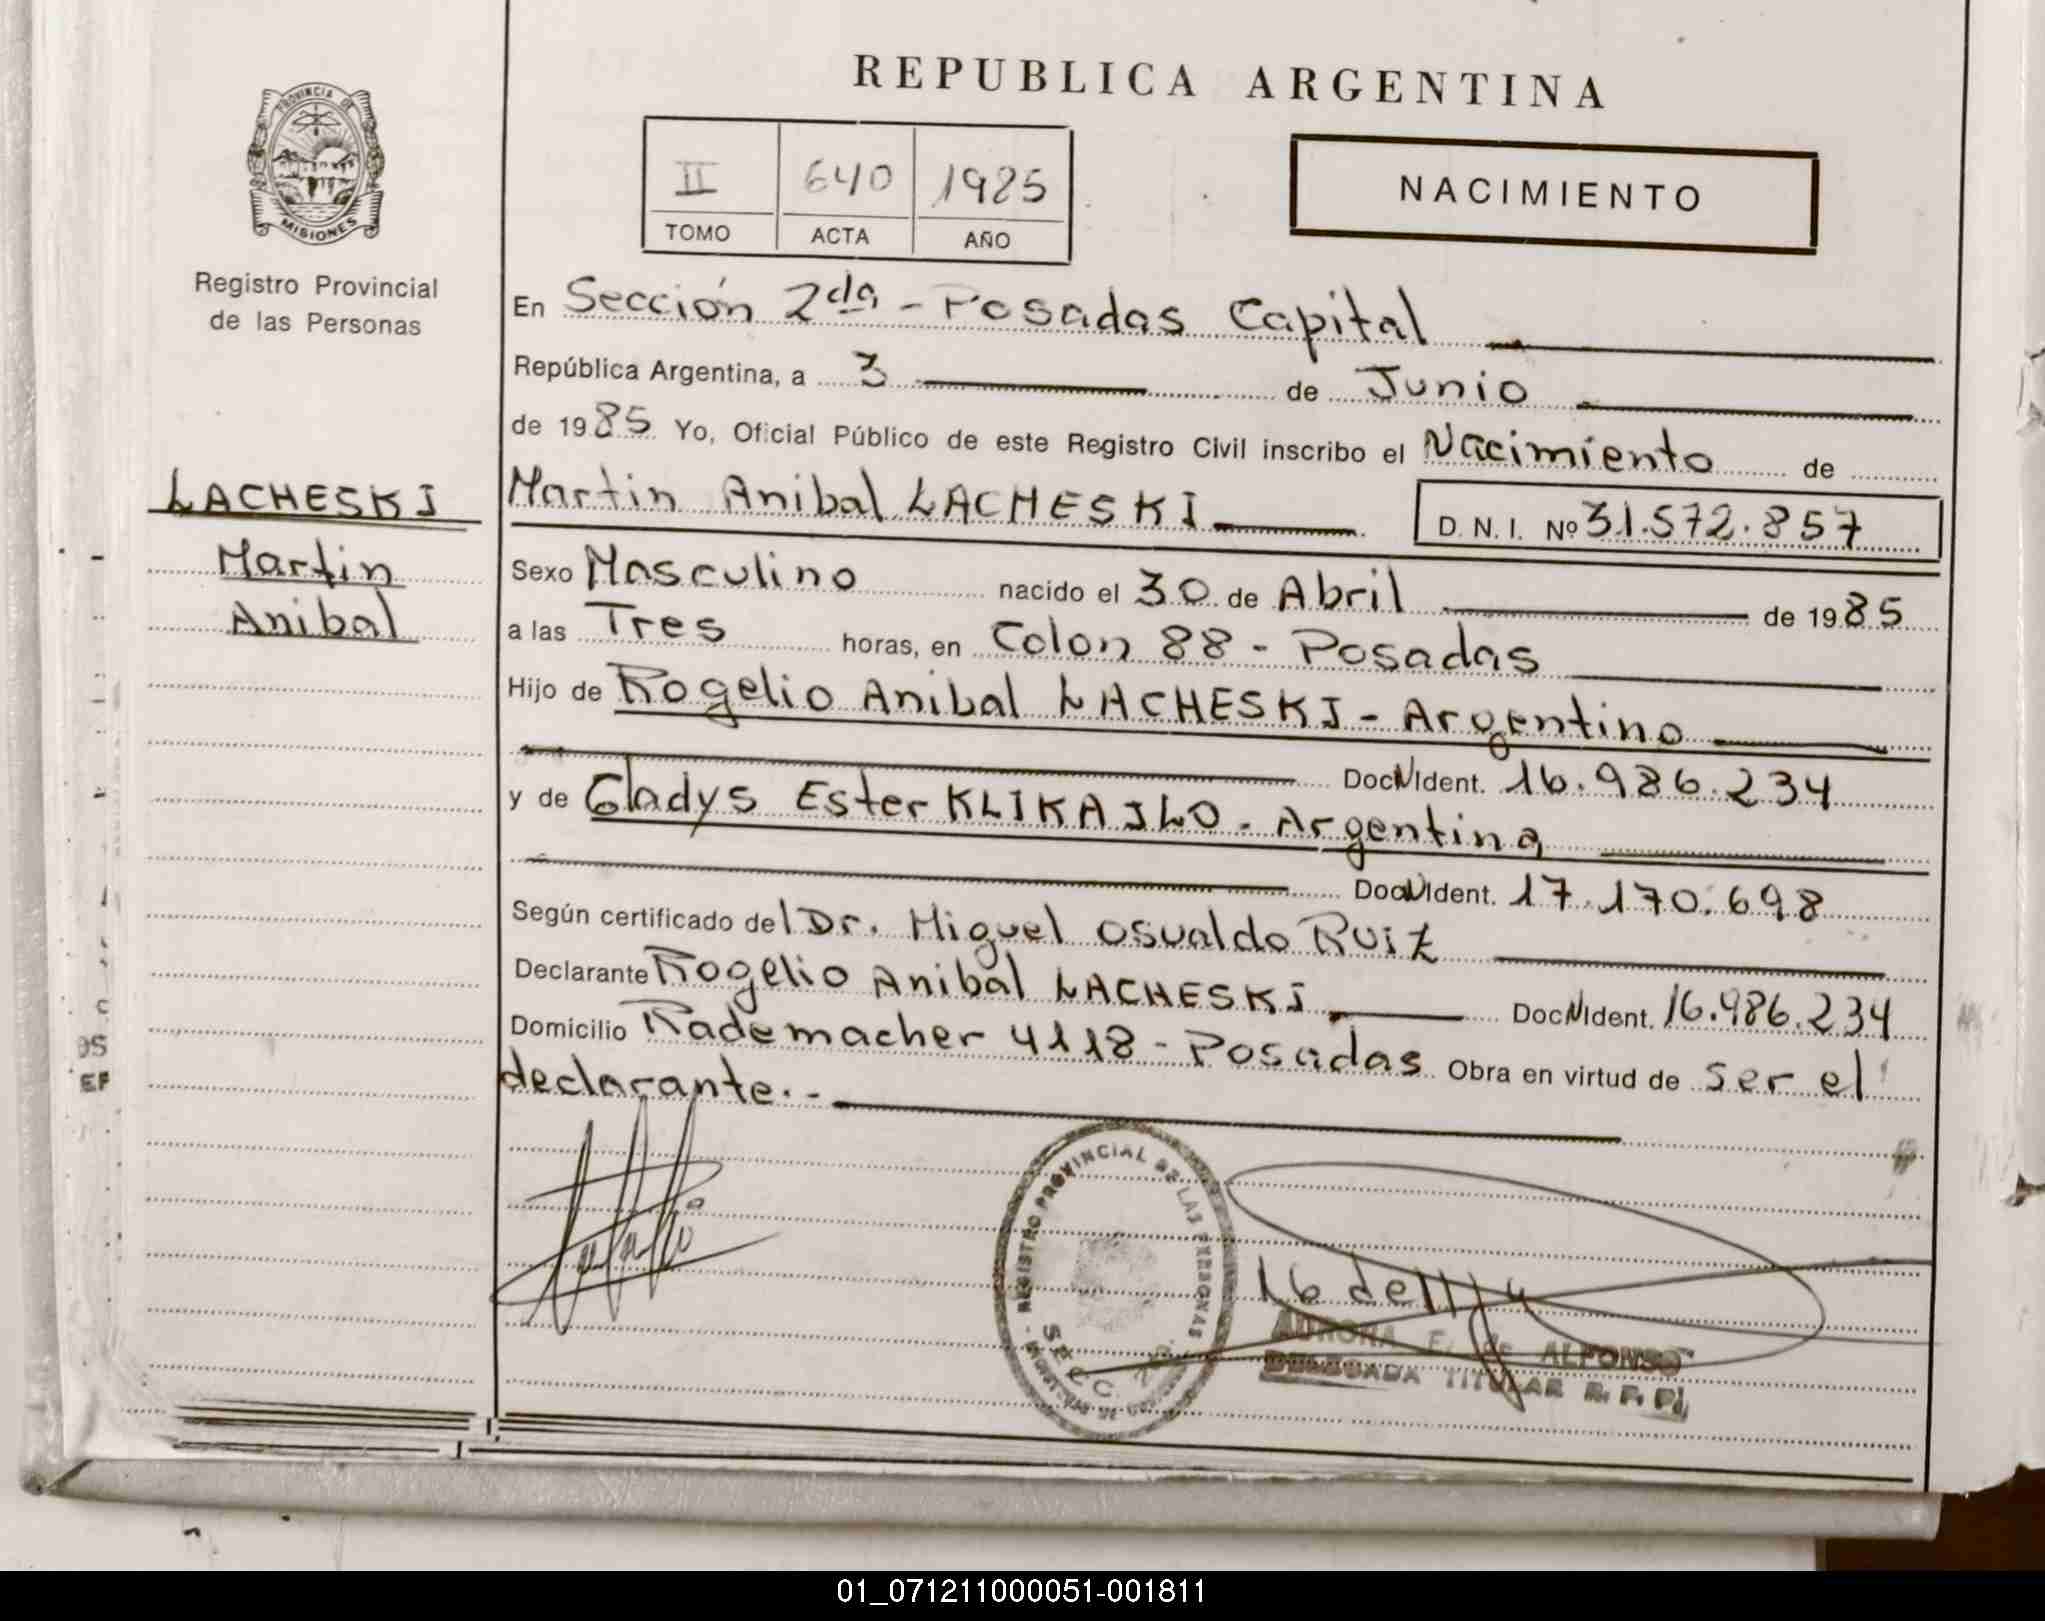 REPUBLICA ARGENTINA
PROVINCIA DE
MISIONES
Registro Provincial
de las Personas
II 640 1985
TOMO ACTA AÑO
NACIMIENTO
En Sección 2da - Posadas Capital
República Argentina, a 3 de Junio
de 1985 Yo, Oficial Público de este Registro Civil inscribo el Nacimiento de
LACHESKI
Martin
Anibal
Martin Anibal LACHESKI D. N. I. Nº 31.572.857
Sexo Masculino nacido el 30 de Abril de 1985
a las Tres horas, en Colon 88 - Posadas
Hijo de Rogelio Anibal LACHESKI - Argentino
DocNIdent. 16.986.234
y de Gladys Ester KLIKAILO - Argentina
DocNIdent. 17.170.698
Según certificado del Dr. Miguel Osvaldo Ruiz
Declarante Rogelio Anibal LACHESKI DocNIdent. 16.986.234
Domicilio Rademacher 4118 - Posadas Obra en virtud de ser el
declarante. -
REGISTRO PROVINCIAL DE LAS PERSONAS
SECC.
16 de
AURORA F. de ALFONSO
DELEGADA TITULAR R. P. P.
01_071211000051-001811